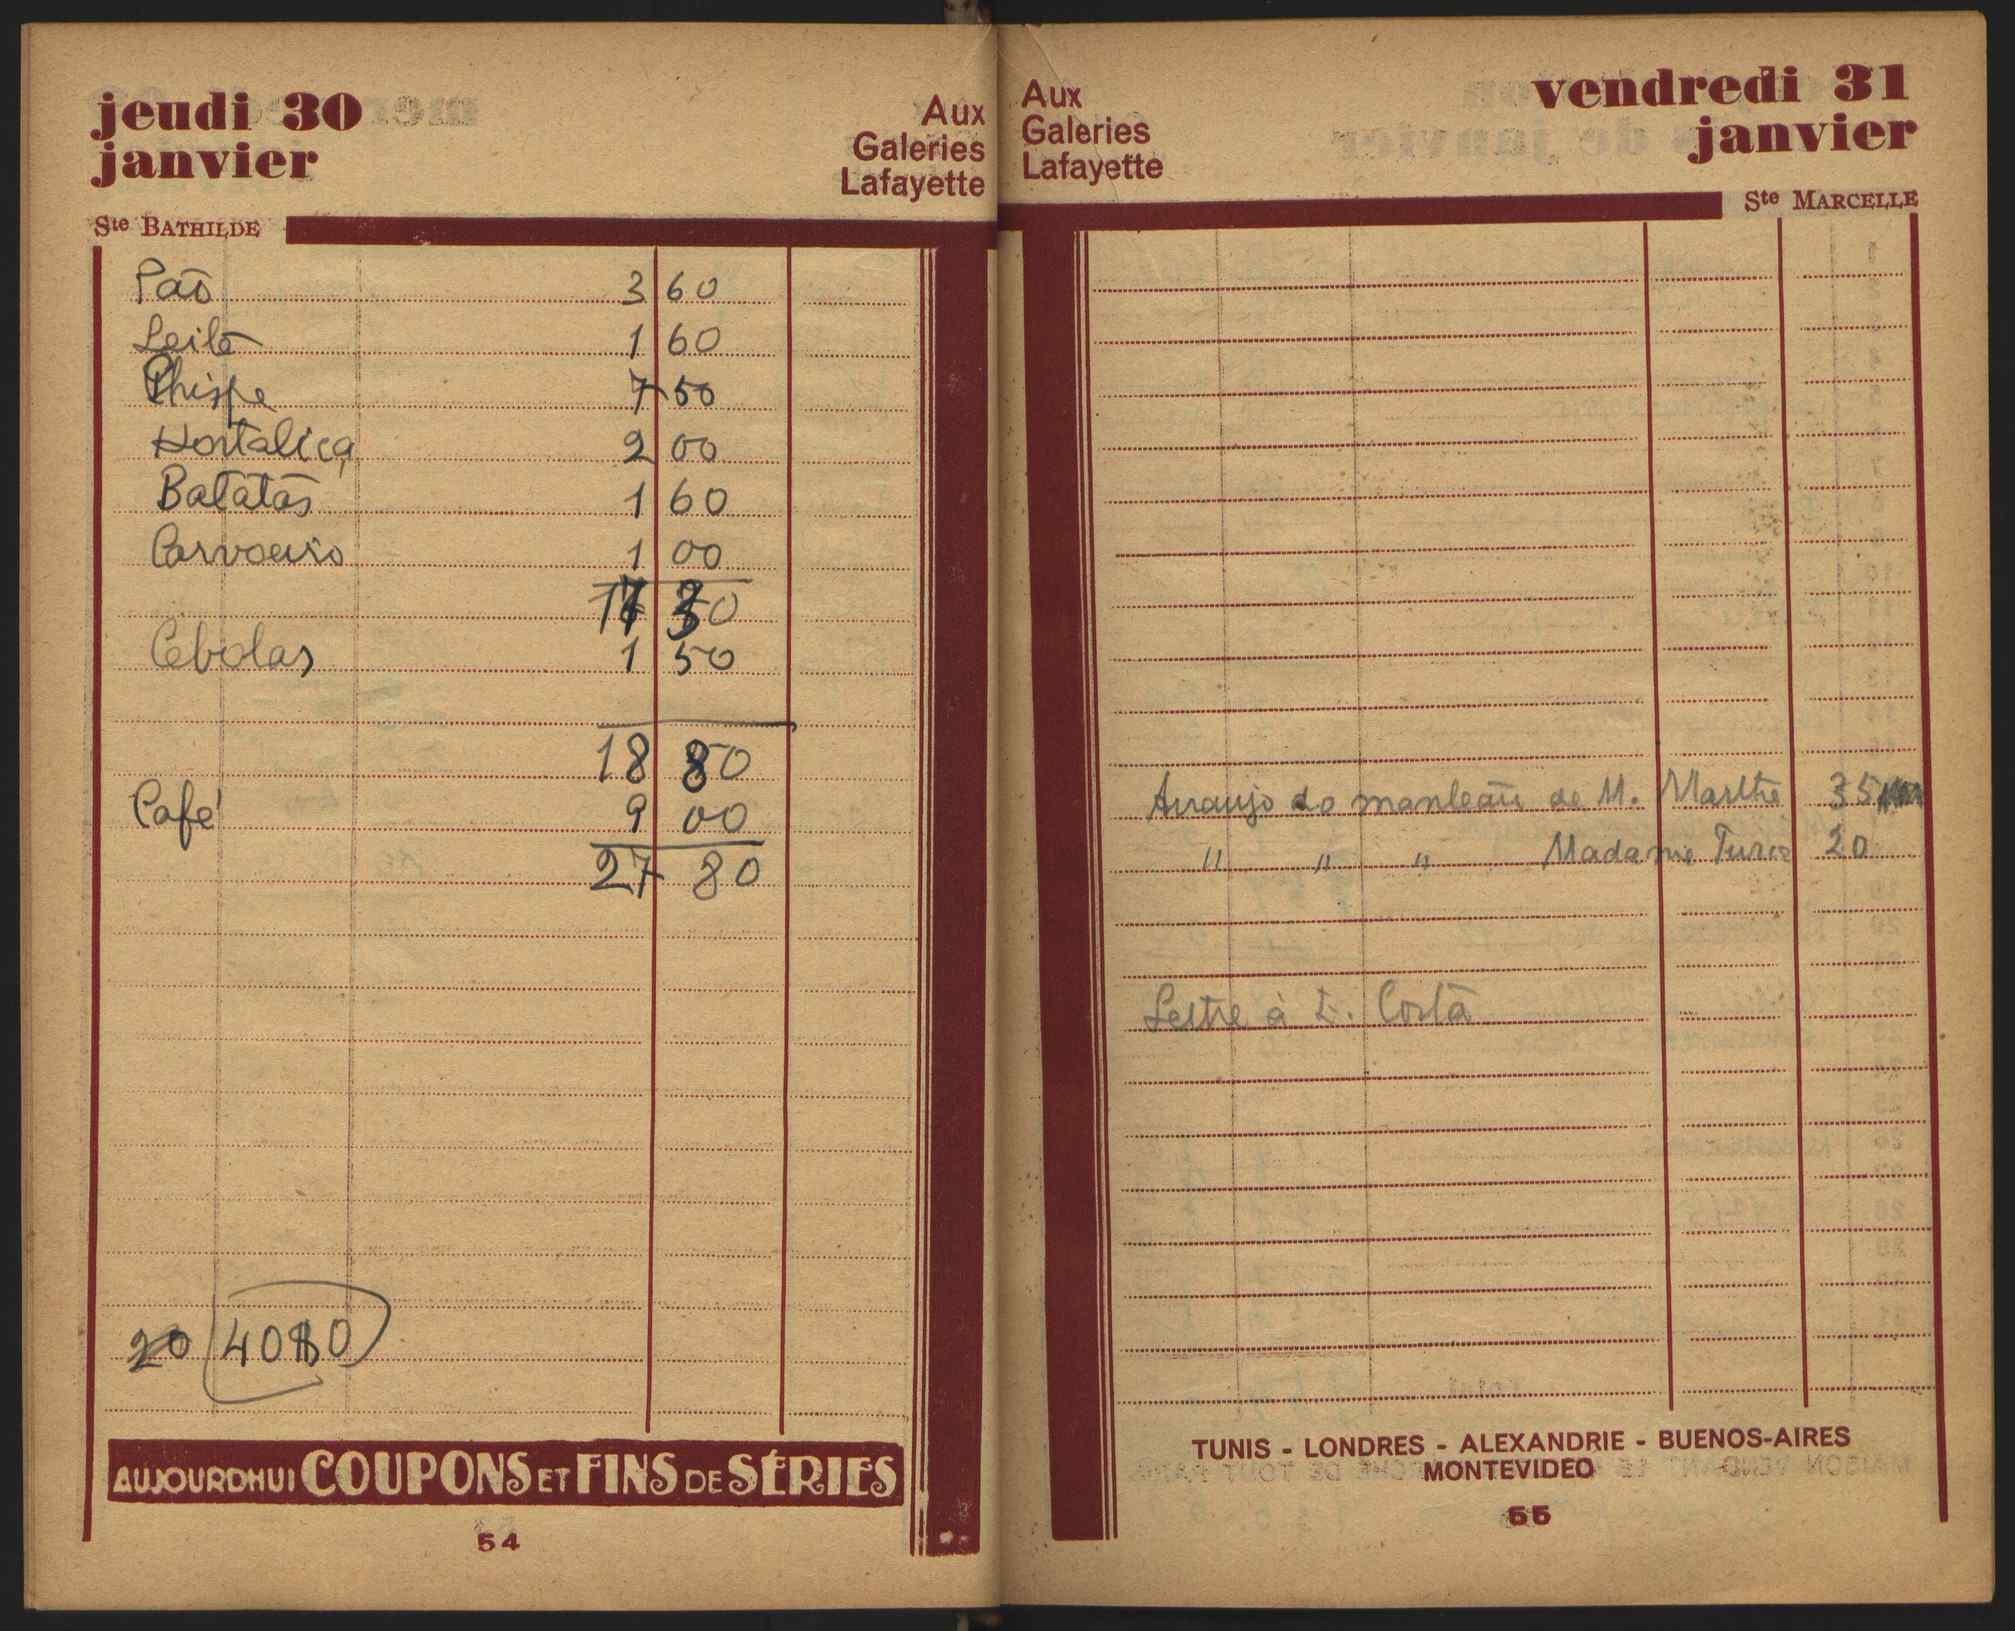 jeudi 30
janvier
Aux
Galeries
Lafayette
Ste BATHILDE
Pão 3 60
Leite 1 60
7 50
Hortaliça 2 00
Batatas 1 60
Carvoeiro 1 00
17 30
Cebolas 1 50
18 80
Café 9 00
27 80
20 4080
AUJOURDHUI COUPONS ET FINS DE SÉRIES
54
Aux
Galeries
Lafayette
vendredi 31
janvier
Ste MARCELLE
Arranjo do manteau de M. Marthe 35
" " " Madame 20
Lettre à D. Costa
TUNIS - LONDRES - ALEXANDRIE - BUENOS-AIRES
MONTEVIDEO
55